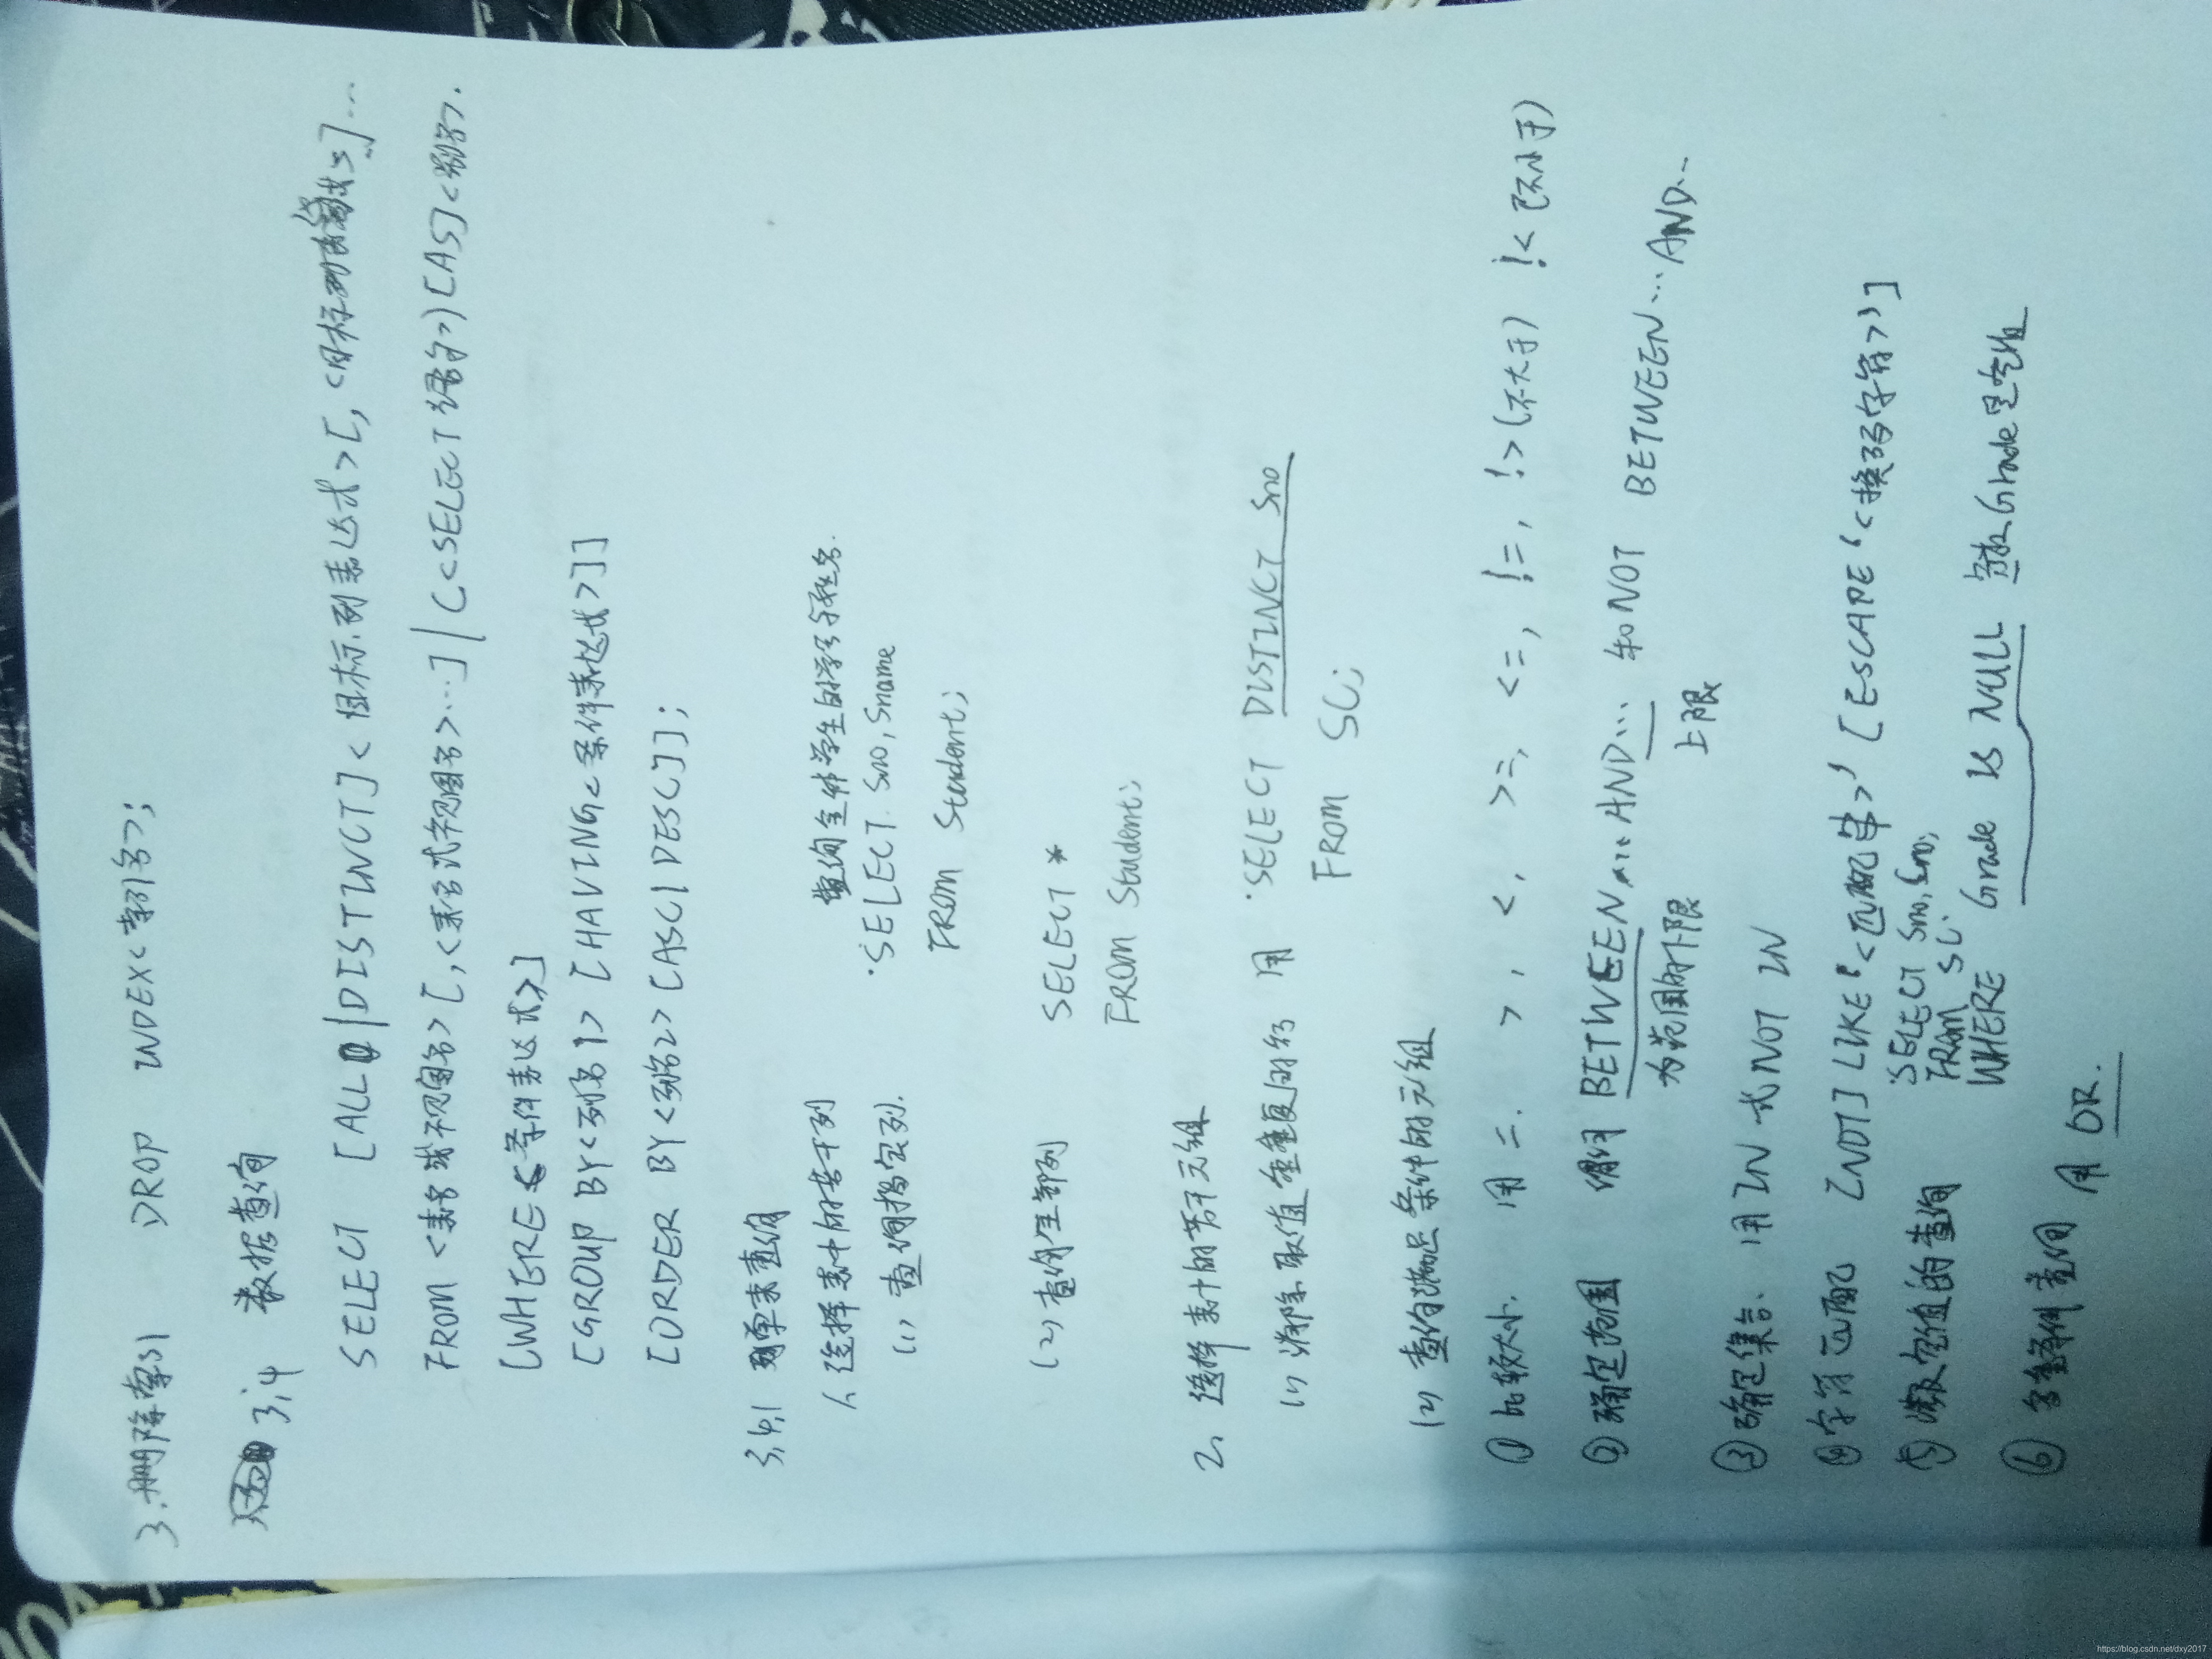 3.删除索引 DROP INDEX<索引名>;
3.4 数据查询
SELECT [ALL|DISTINCT]<目标列表达式>[,<目标列表达式>]...
FROM <表名或视图名>[,<表名或视图名>...]|(<SELECT语句>)[AS]<别名>.
[WHERE<条件表达式>]
[GROUP BY<列名1>[HAVING<条件表达式>]]
[ORDER BY<列名2>[ASC|DESC]];
3.4.1 单表查询
1、选择表中的若干列 查询全体学生的学号与姓名.
(1) 查询指定列. ·SELECT Sno, Sname
FROM Student;
(2) 查询全部列 SELECT *
FROM Student;
2、选择表中的若干元组
(1) 消除取值重复的行 用 ·SELECT DISTINCT Sno
FROM SC;
(2) 查询满足条件的元组
① 比较大小. 用 =. >, <, >=, <=, !=, !>(不大于) !<(不小于)
② 确定范围 用 BETWEEN...AND... 和NOT BETWEEN...AND...
为范围的下限 上限
③ 确定集合. 用IN 或NOT IN
④ 字符匹配 [NOT] LIKE '<匹配串>' [ESCAPE '<换码字符>']
⑤ 涉及空值的查询 ·SELECT Sno, Cno,
FROM SC.
WHERE Grade IS NULL Grade是空值
⑥ 多重条件查询 用 OR.
https://blog.csdn.net/dxy2017